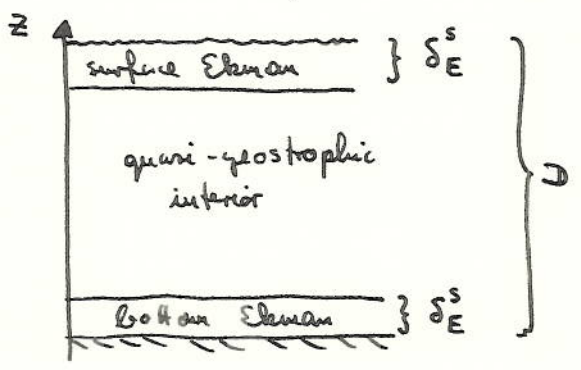 z
surface Ekman } δ_E^S
quasi-geostrophic
interior
D
bottom Ekman } δ_E^S